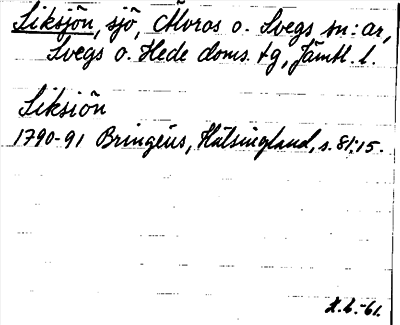 Siksjön, sjö, Älvros o. Svegs sn:ar,
Svegs o. Hede doms. tg, Jämtl. l.
Siksiön
1790-91 Bringéus, Hälsingland, s. 81:15.
-61.